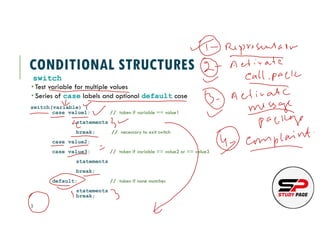 CONDITIONAL STRUCTURES
switch
• Test variable for multiple values
• Series of case labels and optional default case
switch(variable){
case value1: // taken if variable == value1
statements
break; // necessary to exit switch
case value2:
case value3: // taken if variable == value2 or == value3
statements
break;
default: // taken if none matches
statements
break;
}
1-
2- Activate
call pack
3- Activate
message
package
4- Complaint
SP
STUDY PAGE